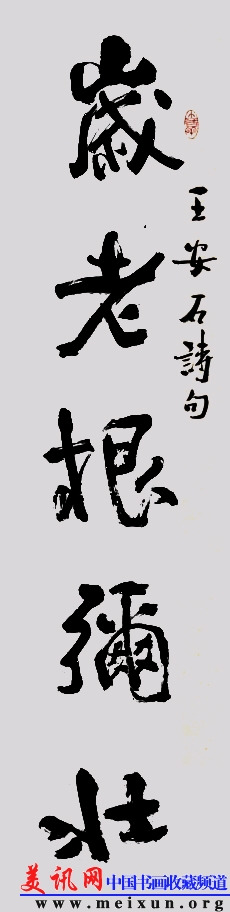 王安石詩句
歲老根彌壯
美讯网 中国书画收藏频道
www.meixun.org